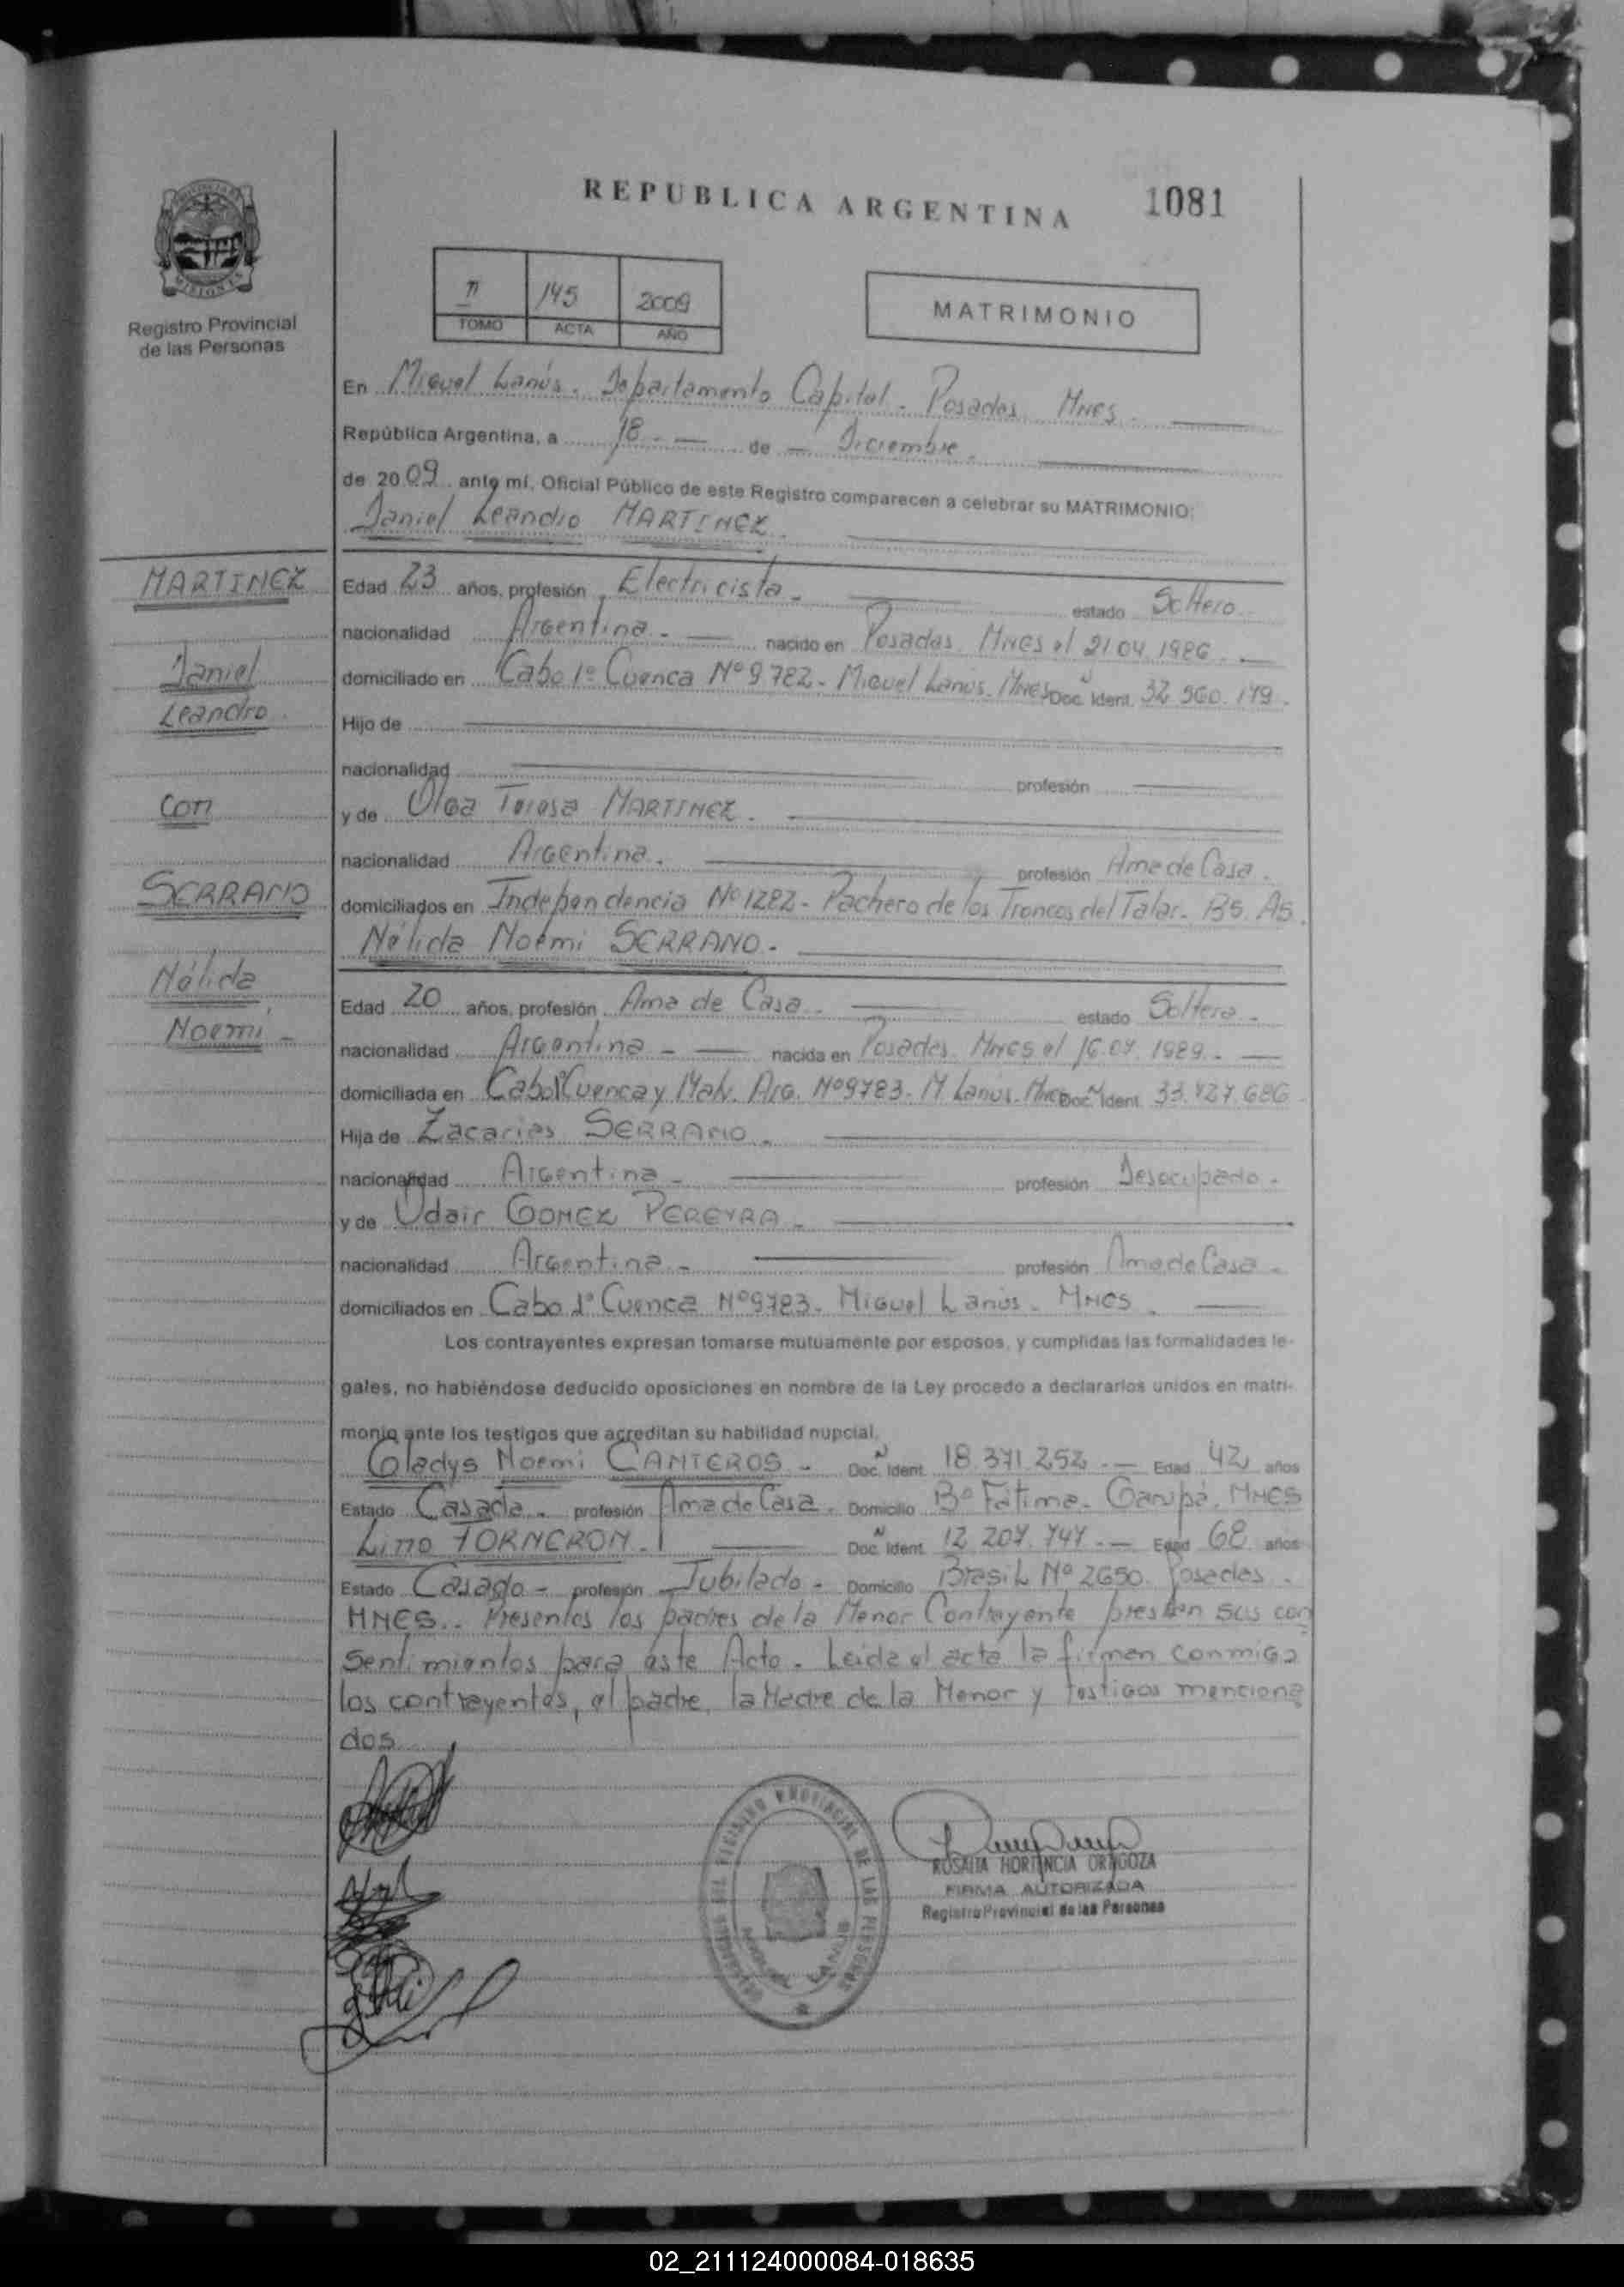 REPUBLICA ARGENTINA
1081
PROVINCIA
MISIONES
Registro Provincial
de las Personas
II 145 2009
TOMO ACTA AÑO
MATRIMONIO
En Miguel Lanús. Departamento Capital. Posadas Mnes.
República Argentina, a 18. — de — Diciembre.
de 2009 ante mí, Oficial Público de este Registro comparecen a celebrar su MATRIMONIO:
Daniel Leandro MARTINEZ.
MARTINEZ
Daniel
Leandro.
con
SERRANO
Nélida
Noemi. -
Edad 23 años, profesión Electricista. estado Soltero.
nacionalidad Argentina. — nacido en Posadas. Mnes el 21.04.1986. —
domiciliado en Cabo 1º Cuenca Nº 9782 - Miguel Lanús. Mnes Doc. Ident. 32.560.179.
Hijo de
nacionalidad profesión
y de Olga Teresa MARTINEZ.
nacionalidad Argentina. profesión Ama de Casa.
domiciliados en Independencia Nº 1282 - Pachero de los Troncos del Talar. Bs. As.
Nélida Noemi SERRANO.
Edad 20 años, profesión Ama de Casa. estado Soltera.
nacionalidad Argentina - — nacida en Posadas. Mnes el 16.07.1989. —
domiciliada en Cabo 1º Cuenca y Malv. Arg. Nº 9783. M. Lanús. Mnes Doc. Ident. 33.727.686
Hija de Zacarias SERRANO.
nacionalidad Argentina - profesión Desocupado.
y de Udair GOMEZ PEREYRA -
nacionalidad Argentina. - profesión Ama de Casa.
domiciliados en Cabo 1º Cuenca Nº 9783. Miguel Lanús. Mnes.
Los contrayentes expresan tomarse mutuamente por esposos, y cumplidas las formalidades le-
gales, no habiéndose deducido oposiciones en nombre de la Ley procedo a declararlos unidos en matri-
monio ante los testigos que acreditan su habilidad nupcial.
Gladys Noemi CANTEROS - Doc. Ident. 18.371.252 .— Edad 42 años
Estado Casada. profesión Ama de Casa. Domicilio Bº Fátima. Garupá. Mnes
Lino TORNERON. Doc. Ident. 12.207.747 .— Edad 68 años
Estado Casado - profesión Jubilado. Domicilio Brasil Nº 2650. Posadas.
MNES.. Presentes los padres de la Menor Contrayente prestan sus con
sentimientos para éste Acto. Leida el acta la firman conmigo
los contrayentes, el padre, la Madre de la Menor y testigos menciona
dos
REGISTRO PROVINCIAL DE LAS PERSONAS
MIGUEL LANUS
ROSAITA HORTINCIA ORTIGOZA
FIRMA AUTORIZADA
Registro Provincial de las Personas
02_211124000084-018635